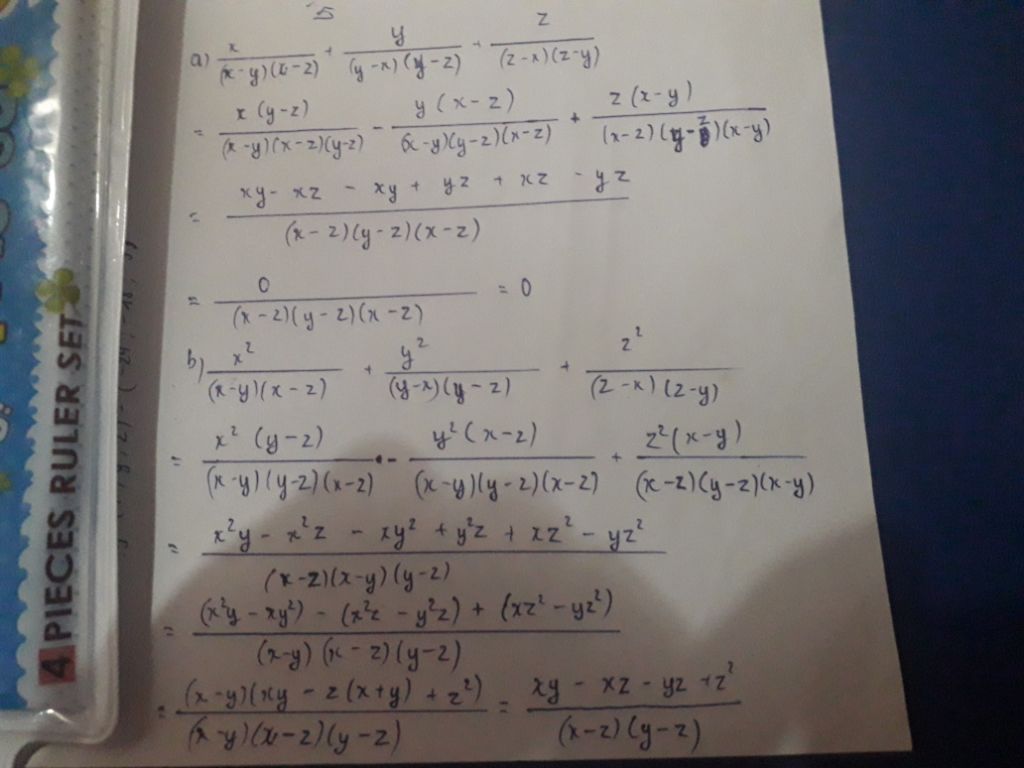 5
a) x/((x-y)(x-z)) + y/((y-x)(y-z)) + z/((z-x)(z-y))
= x(y-z)/((x-y)(x-z)(y-z)) - y(x-z)/((x-y)(y-z)(x-z)) + z(x-y)/((x-z)(y-z)(x-y))
= (xy - xz - xy + yz + xz - yz)/((x-z)(y-z)(x-z))
= 0/((x-z)(y-z)(x-z)) = 0
b) x²/((x-y)(x-z)) + y²/((y-x)(y-z)) + z²/((z-x)(z-y))
= x²(y-z)/((x-y)(y-z)(x-z)) - y²(x-z)/((x-y)(y-z)(x-z)) + z²(x-y)/((x-z)(y-z)(x-y))
= (x²y - x²z - xy² + y²z + xz² - yz²)/((x-z)(x-y)(y-z))
= ((x²y - xy²) - (x²z - y²z) + (xz² - yz²))/((x-y)(x-z)(y-z))
= (x-y)(xy - z(x+y) + z²)/((x-y)(x-z)(y-z)) = (xy - xz - yz + z²)/((x-z)(y-z))
4 PIECES RULER SET